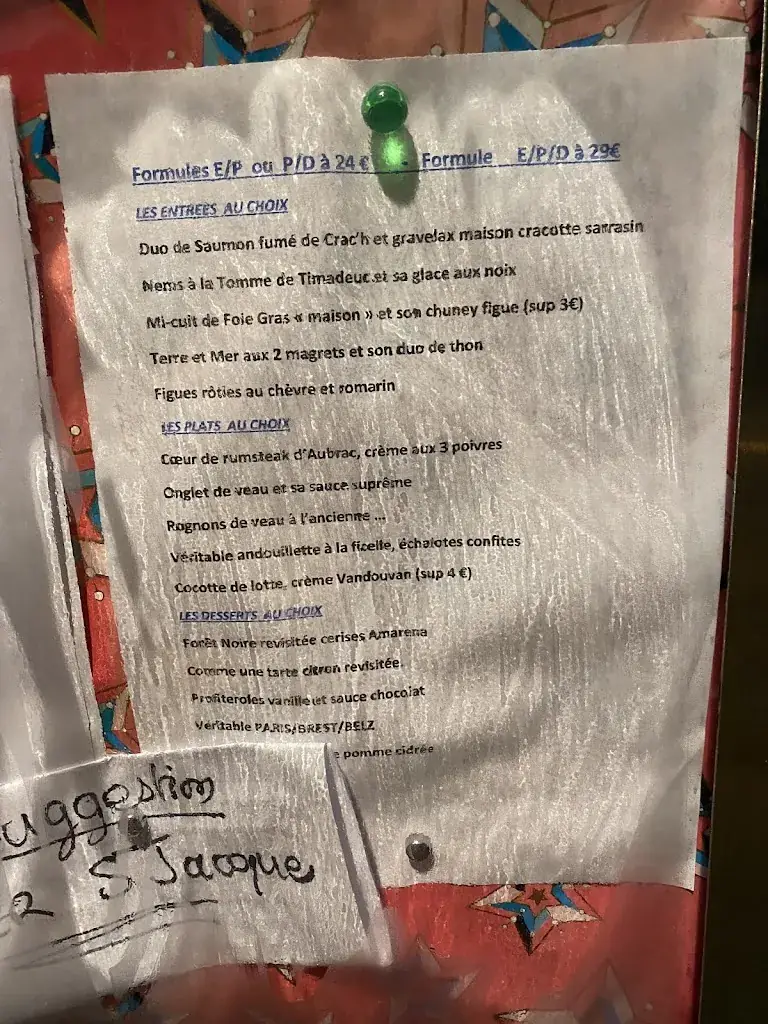 Formules E/P ou P/D à 24 € - Formule E/P/D à 29€
LES ENTREES AU CHOIX
Duo de Saumon fumé de Crac'h et gravelax maison cracotte sarrasin
Nems à la Tomme de Timadeuc et sa glace aux noix
Mi-cuit de Foie Gras « maison » et son chuney figue (sup 3€)
Terre et Mer aux 2 magrets et son duo de thon
Figues rôties au chèvre et romarin
LES PLATS AU CHOIX
Cœur de rumsteak d'Aubrac, crème aux 3 poivres
Onglet de veau et sa sauce suprême
Rognons de veau à l'ancienne ...
Véritable andouillette à la ficelle, échalotes confites
Cocotte de lotte, crème Vandouvan (sup 4 €)
LES DESSERTS AU CHOIX
Forêt Noire revisitée cerises Amarena
Comme une tarte citron revisitée.
Profiteroles vanille et sauce chocolat
Véritable PARIS/BREST/BELZ
pomme cidrée
uggestion
2 S Jacque